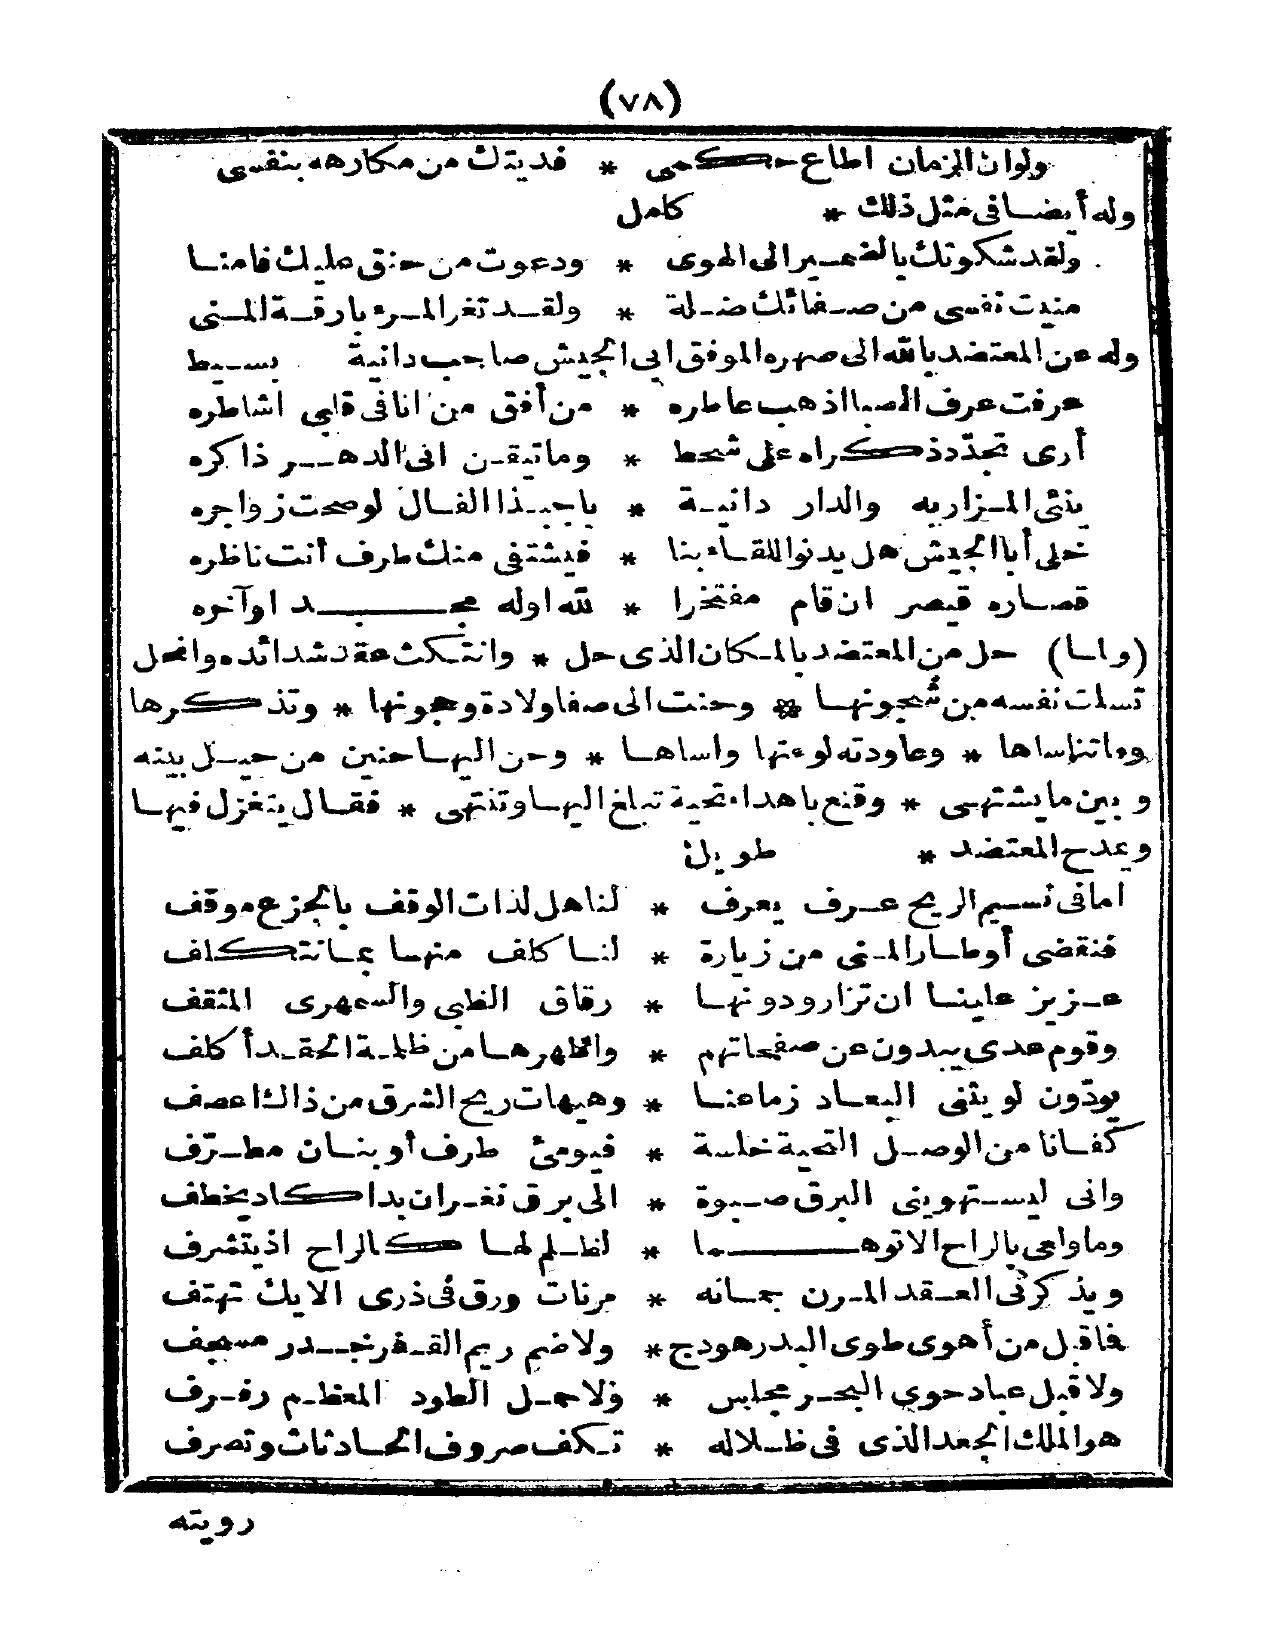 (٧٨)
ولوان الزمان اطاع حكمى * فديتك من مكارهه بنفسى
وله أيضا فى مثل ذلك * كامل
ولقد شكوتك بالضمير الى الهوى * ودعوت من حنق عليك فامنا
منيت نفسى من صفائك ضلة * ولقد تغر المرء بارقة المنى
وله عن المعتضد بالله الى صهره الموفق ابى الجيش صاحب دانية بسيط
عرفت عرف الصبا اذ هب عاطره * من أفق من انا فى قلبى اشاطره
أرى تجدّد ذكراه على شحط * وما تيقن انى الدهر ذاكره
ينئى المزار به والدار دانية * يا حبذا الفال لو صحت زواجره
خلى أبا الجيش هل يدنو اللقاء بنا * فيشتفى منك طرف أنت ناظره
قصاره قيصر ان قام مفتخرا * لله اوله مجد اوآخره
(ولما) حل من المعتضد بالمكان الذى حل * وانتكث عقد شدائده وانحل
تسلت نفسه من شُجونها * وحنت الى صفا ولادة وجونها * وتذكرها
وما تناساها * وعاودته لوعتها واساها * وحن اليها حنين من حيل بينه
وبين ما يشتهى * وقنع باهداء تحية تبلغ اليها وتنتهى * فقال يتغزل فيها
ويمدح المعتضد * طويل
اما فى نسيم الريح عرف يعرف * لنا هل لذات الوقف بالجزع موقف
فنقضى أوطار المنى من زيارة * لنا كلف منها بما نتكلف
عزيز علينا ان تزار ودونها * رقاق الظبى والسمهرى المثقف
وقوم عدى يبدون عن صفحاتهم * واظهرها من ظلمة الحقد أكلف
يودّون لو يثنى البعاد زماعنا * وهيهات ريح الشرق من ذاك اعصف
كفانا من الوصل التحية خلسة * فيومئ طرف أو بنان مطرّف
وانى ليستهوينى البرق صبوة * الى برق ثغر ان بدا كاد يخطف
وما ولعى بالراح الا توهما * لظلم لها كالراح اذ يترشف
ويذكرنى العقد المرن جمانه * مرنات ورق فى ذرى الايك تهتف
فما قبل من أهوى طوى البدر هودج * ولا ضم ريم القفر خدر مسجف
ولا قبل عباد حوى البحر مجلس * ولا حمل الطود المعظم رفرف
هو الملك الجعد الذى فى ظلاله * تكف صروف الحادثات وتصرف
رويته